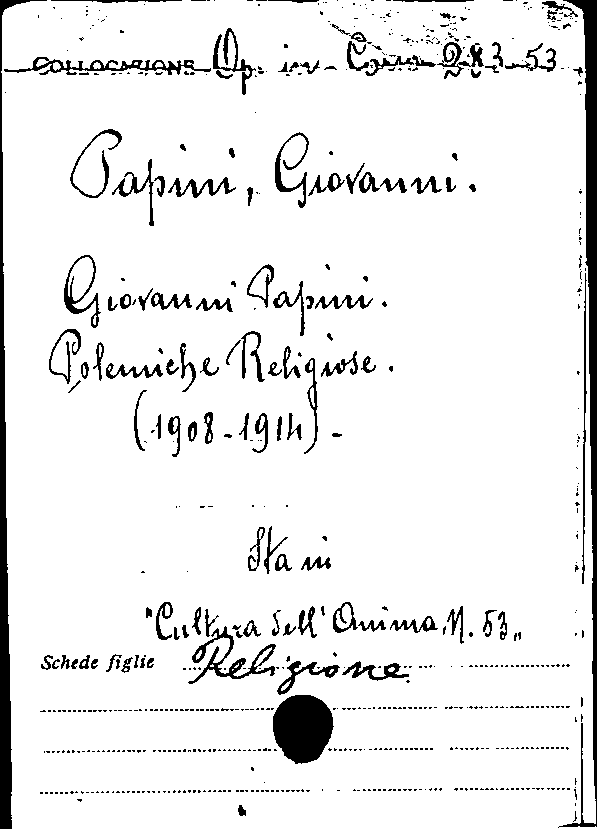 COLLOCAZIONE Op. in Corso 283-53
Papini, Giovanni.
Giovanni Papini.
Polemiche Religiose.
(1908-1914) -
Sta in
"Cultura dell'Anima, N. 53„
Schede figlie Religione